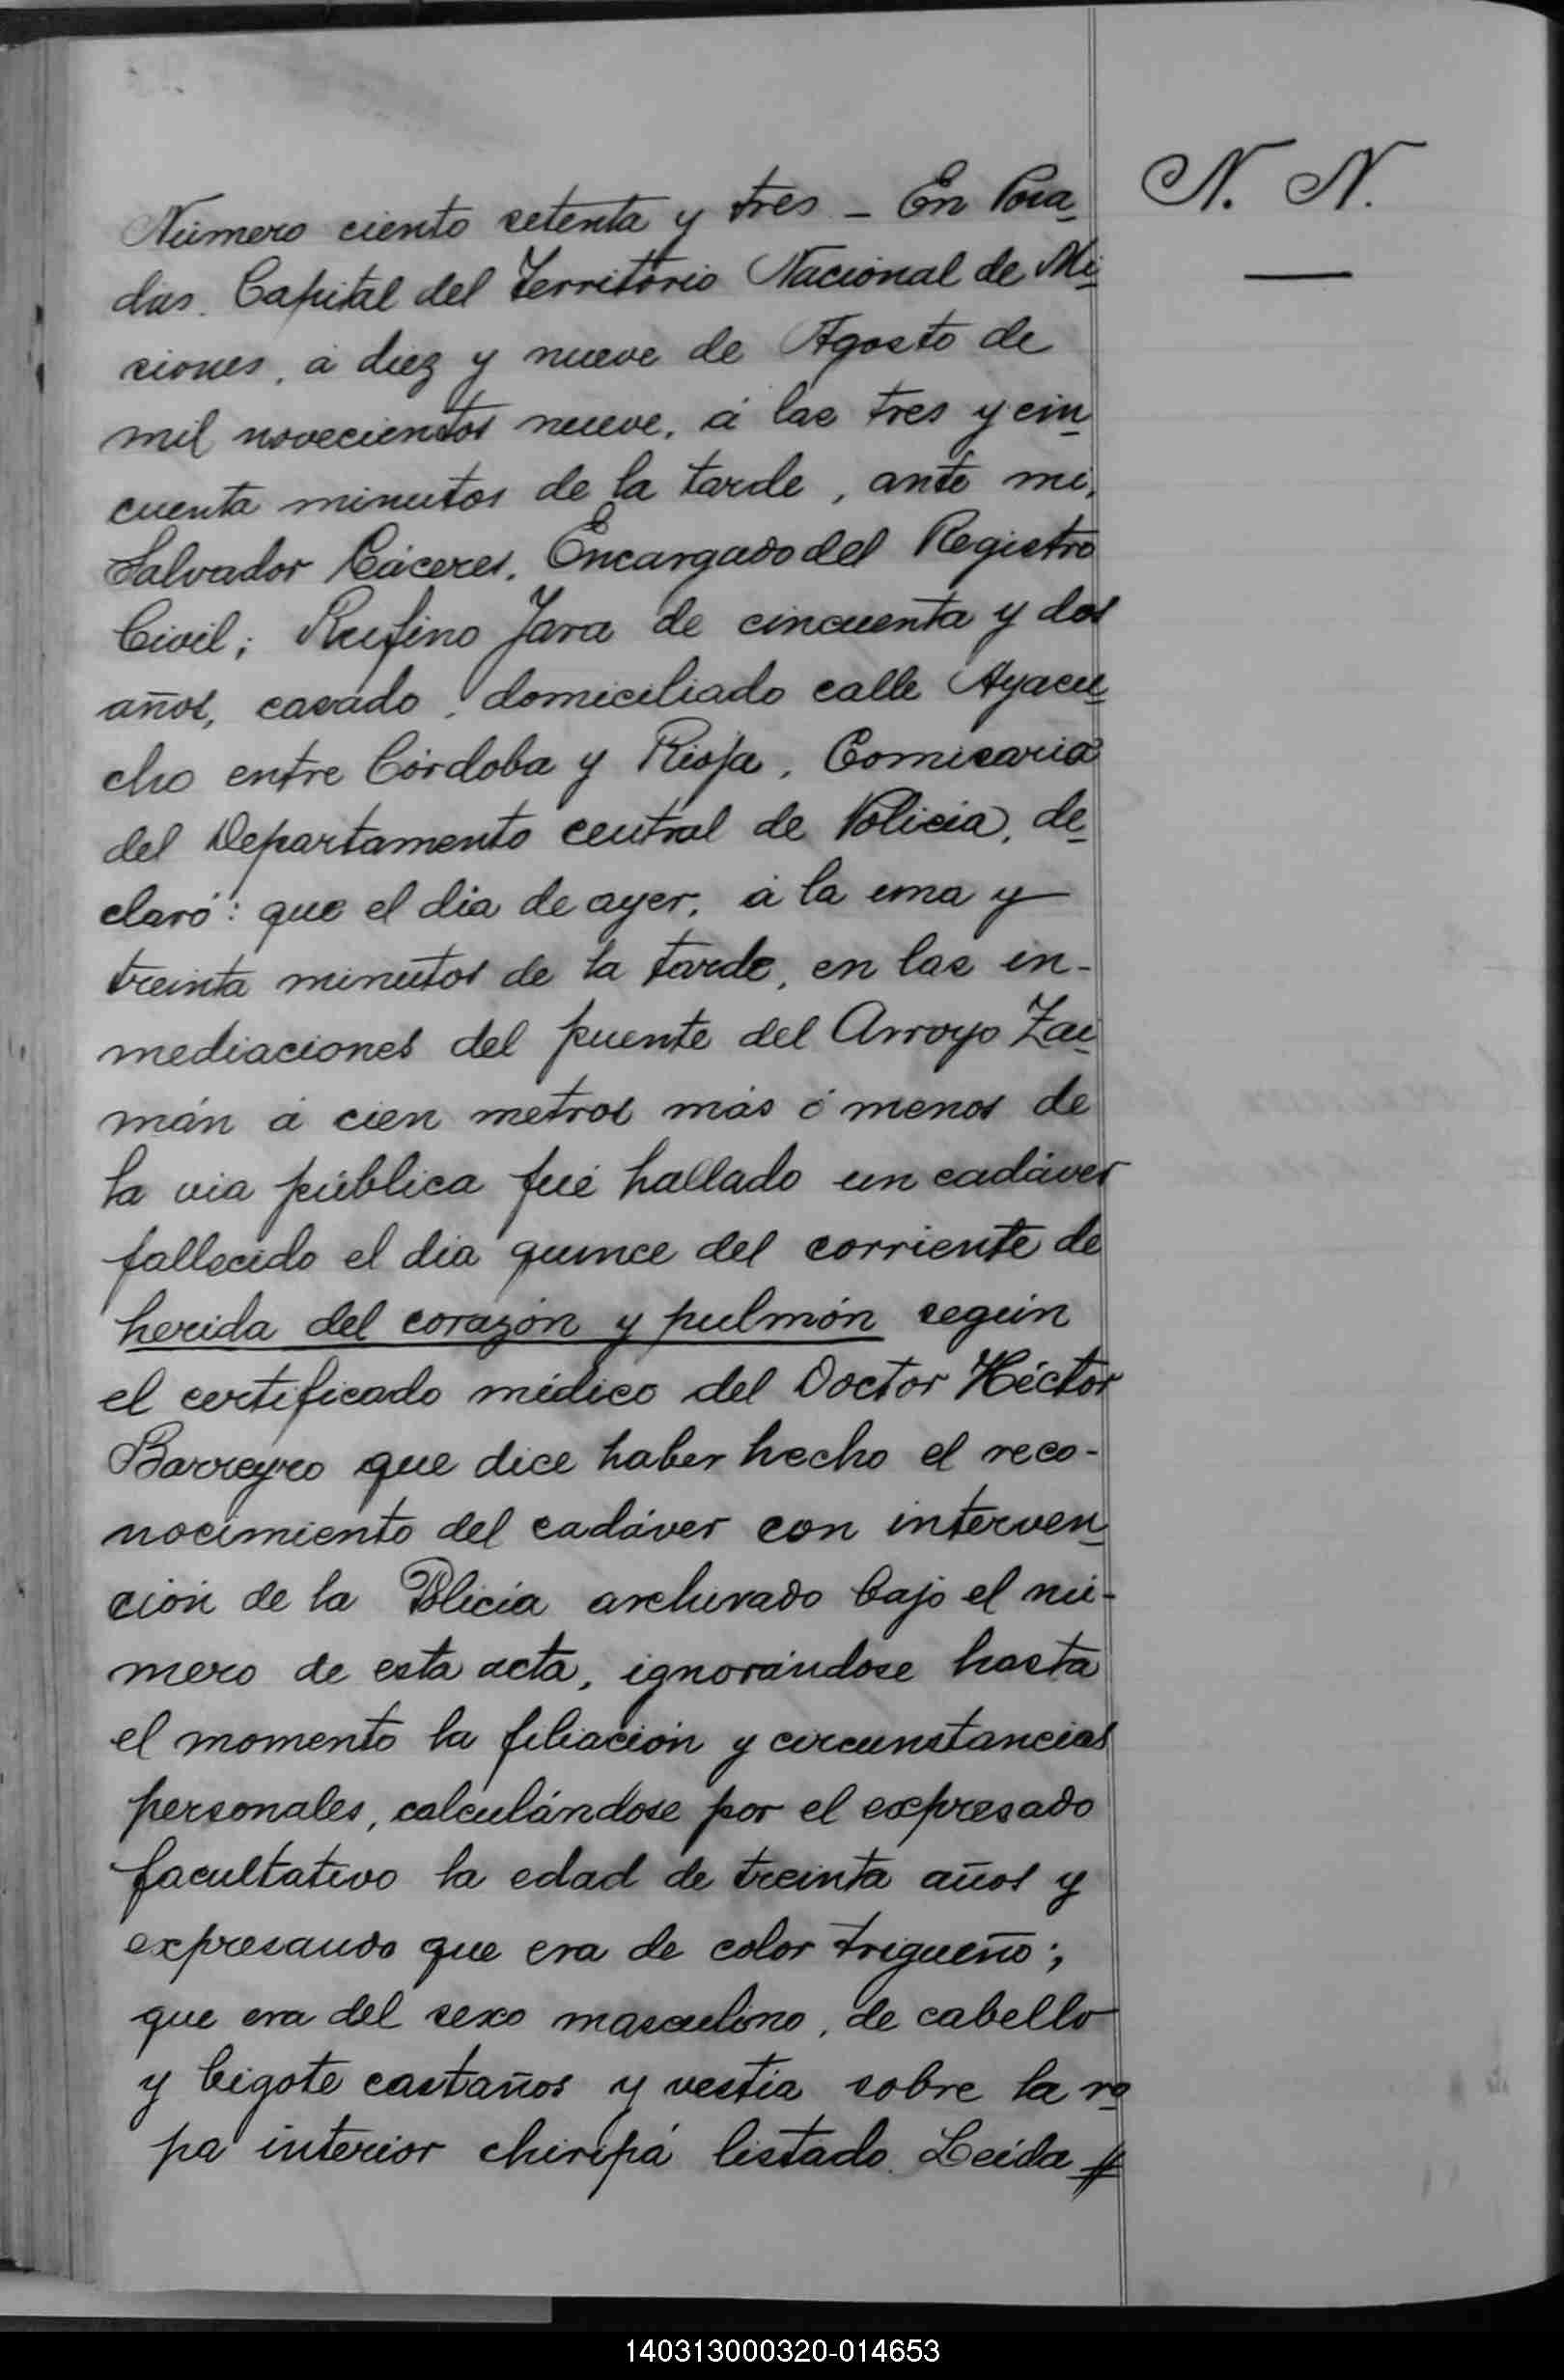 N. N.
Número ciento setenta y tres – En Posa
das. Capital del Territorio Nacional de Mi
siones, á diez y nueve de Agosto de
mil novecientos nueve, á las tres y cin
cuenta minutos de la tarde, ante mi,
Salvador Cáceres, Encargado del Registro
Civil; Rufino Jara de cincuenta y dos
años, casado, domiciliado calle Ayacu
cho entre Córdoba y Rioja, Comisario
del Departamento central de Policía, de
claró: que el dia de ayer, á la una y
treinta minutos de la tarde, en las in-
mediaciones del puente del Arroyo Zai
mán á cien metros más ó menos de
la via pública fué hallado un cadáver
fallecido el dia quince del corriente de
herida del corazón y pulmón según
el certificado médico del Doctor Héctor
Barreyro que dice haber hecho el reco-
nocimiento del cadáver con interven
ción de la Policía archivado bajo el nú-
mero de esta acta, ignorándose hasta
el momento la filiación y circunstancias
personales, calculándose por el expresado
facultativo la edad de treinta años y
expresando que era de color trigueño;
que era del sexo masculino, de cabello
y bigote castaños y vestia sobre la ro
pa interior chiripá listado. Leída //
140313000320-014653